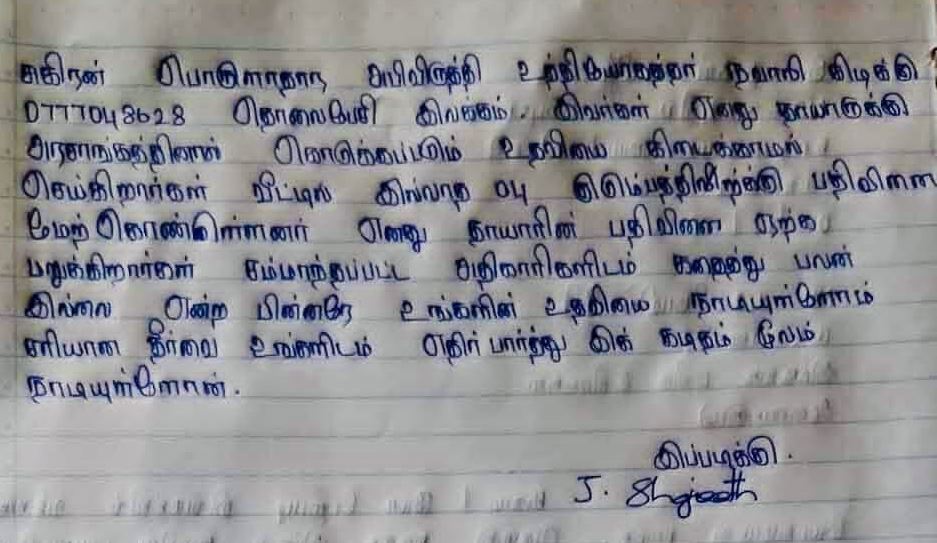 சுகிதன் பொருளாதார அபிவிருத்தி உத்தியோகத்தர் நவாலி கிழக்கு
0777048628 தொலைபேசி இலக்கம். இவர்கள் எனது தாயாருக்கு
அரசாங்கத்தினால் கொடுக்கப்படும் உதவியை கிடைக்காமல்
செய்கிறார்கள் வீட்டில் இல்லாத 04 குடும்பத்திற்கு பதிவினை
மேற்கொண்டுள்ளனர் எனது தாயாரின் பதிவினை ஏற்க
மறுக்கிறார்கள் சம்மந்தப்பட்ட அதிகாரிகளிடம் கதைத்து பலன்
இல்லை என்ற பின்னரே உங்களின் உதவியை நாடியுள்ளோம்
சரியான தீர்வை உங்களிடம் எதிர் பார்த்து இக் கடிதம் மூலம்
நாடியுள்ளோன்.
இப்படிக்கு.
J.